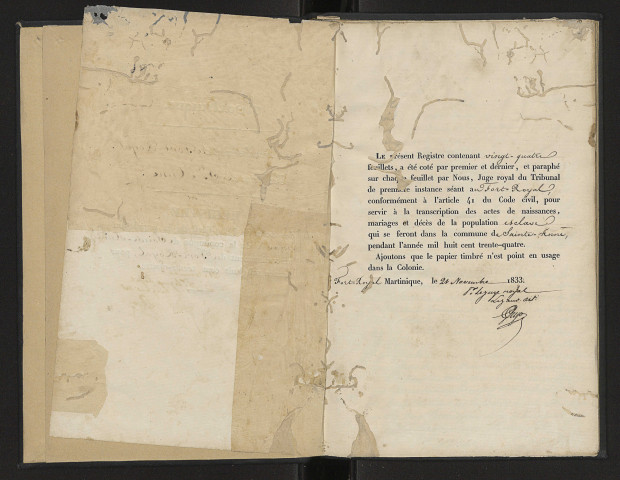 Le présent Registre contenant vingt-quatre
feuillets, a été coté par premier et dernier, et paraphé
sur chaque feuillet par Nous, Juge royal du Tribunal
de première instance séant au Fort-Royal,
conformément à l'article 41 du Code civil, pour
servir à la transcription des actes de naissances,
mariages et décès de la population esclave
qui se feront dans la commune de Sainte-Anne,
pendant l'année mil huit cent trente-quatre.
Ajoutons que le papier timbré n'est point en usage
dans la Colonie.
Fort-Royal Martinique, le 26 Novembre 1833.